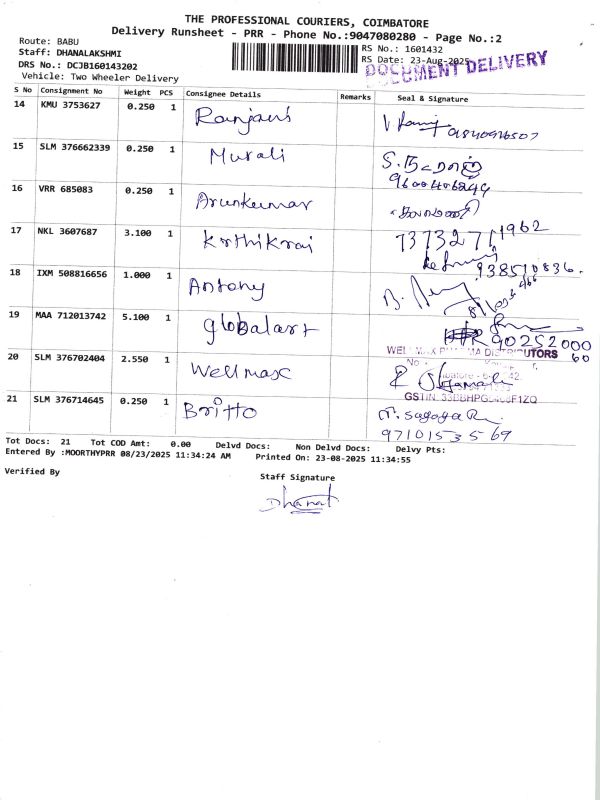 THE PROFESSIONAL COURIERS, COIMBATORE
Delivery Runsheet - PRR - Phone No.:9047080280 - Page No.:2
Route: BABU
Staff: DHANALAKSHMI
DRS No.: DCJB160143202
Vehicle: Two Wheeler Delivery
RS No.: 1601432
RS Date: 23-Aug-2025
DOCUMENT DELIVERY
S No Consignment No Weight PCS Consignee Details Remarks Seal & Signature
14 KMU 3753627 0.250 1 Ranjani
15 SLM 376662339 0.250 1 Murali
9600406244
16 VRR 685083 0.250 1 Arunkumar
17 NKL 3607687 3.100 1 Karthikraj 7373271962
18 IXM 508816656 1.000 1 Antony
19 MAA 712013742 5.100 1 globalart
9025200060
WELLMAX PHARMA DISTRIBUTORS
20 SLM 376702404 2.550 1 Wellmax
21 SLM 376714645 0.250 1 Britto
9710153569
Tot Docs: 21 Tot COD Amt: 0.00 Delvd Docs: Non Delvd Docs: Delvy Pts:
Entered By :MOORTHYPRR 08/23/2025 11:34:24 AM Printed On: 23-08-2025 11:34:55
Verified By
Staff Signature